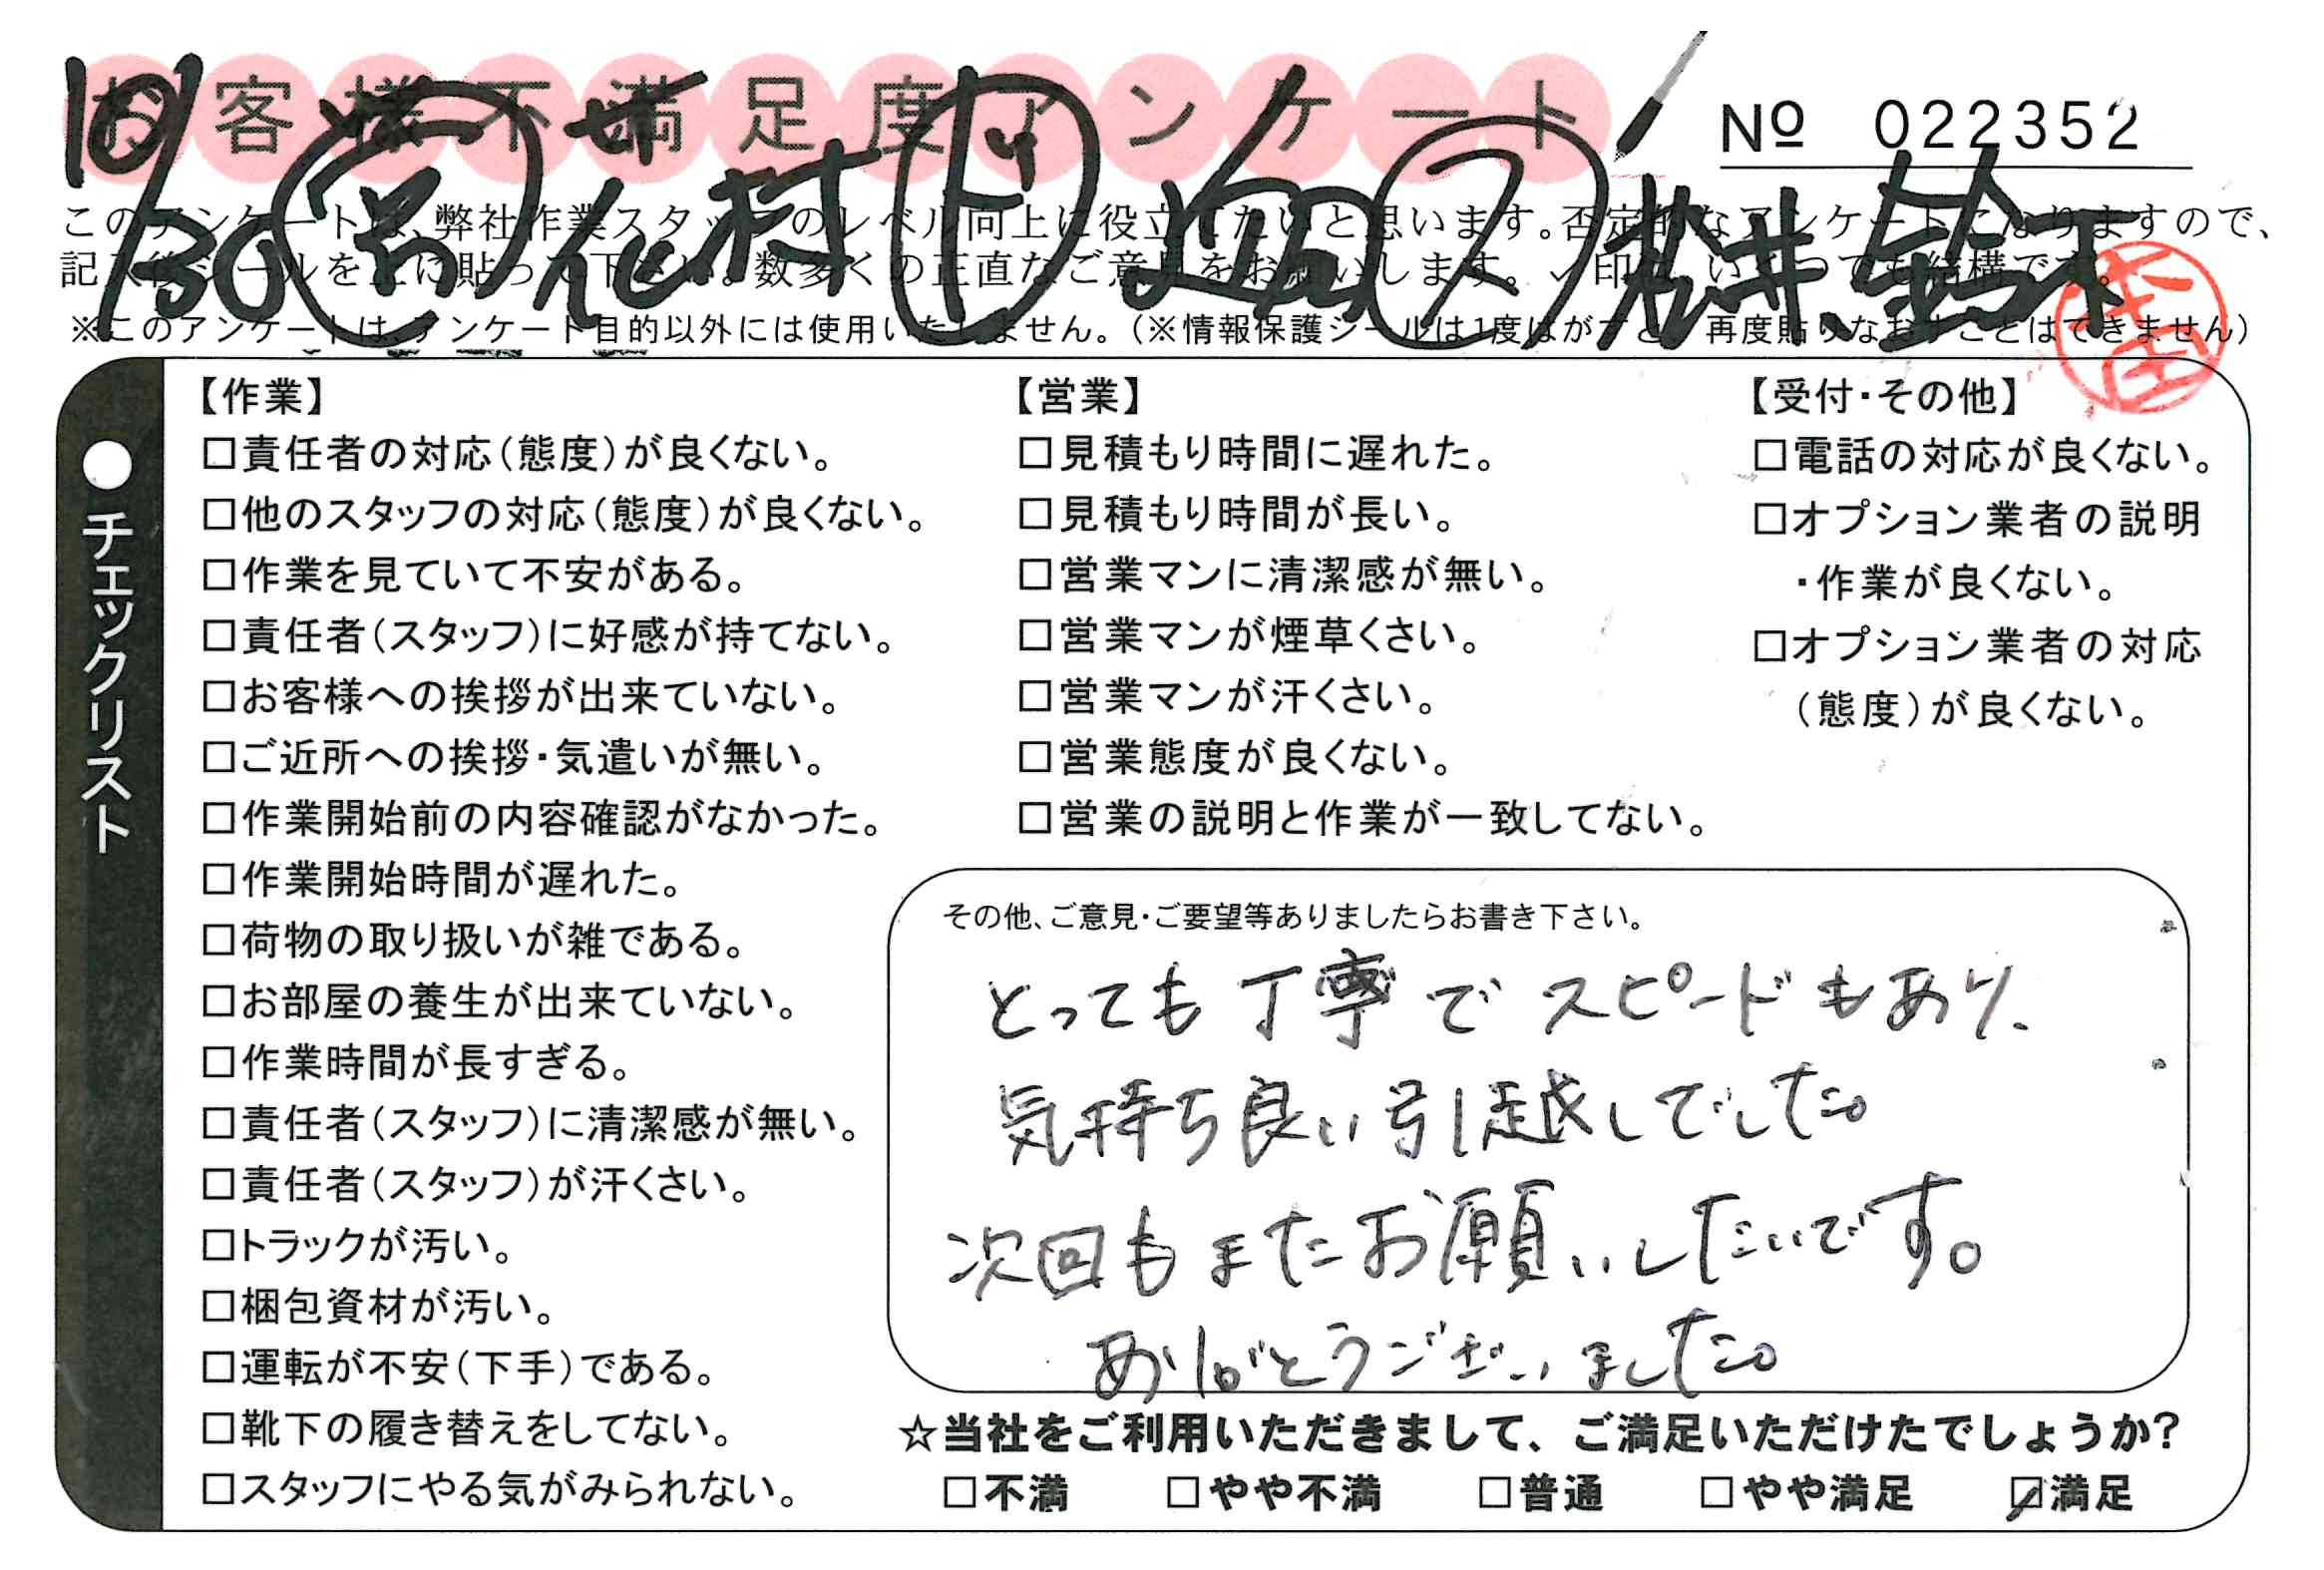 お客様不満足度アンケート
№ 022352
10/30
村
松井、鈴木
このアンケートは、弊社作業スタッフのレベル向上に役立てたいと思います。否定的なアンケートになりますので、
記入後シールを上に貼って下さい。数多くの正直なご意見をお願いします。✓印は、いくつでも結構です。
※このアンケートは、アンケート目的以外には使用いたしません。（※情報保護シールは1度はがすと、再度貼りなおすことはできません）
●チェックリスト
【作業】
□責任者の対応（態度）が良くない。
□他のスタッフの対応（態度）が良くない。
□作業を見ていて不安がある。
□責任者（スタッフ）に好感が持てない。
□お客様への挨拶が出来ていない。
□ご近所への挨拶・気遣いが無い。
□作業開始前の内容確認がなかった。
□作業開始時間が遅れた。
□荷物の取り扱いが雑である。
□お部屋の養生が出来ていない。
□作業時間が長すぎる。
□責任者（スタッフ）に清潔感が無い。
□責任者（スタッフ）が汗くさい。
□トラックが汚い。
□梱包資材が汚い。
□運転が不安（下手）である。
□靴下の履き替えをしてない。
□スタッフにやる気がみられない。
【営業】
□見積もり時間に遅れた。
□見積もり時間が長い。
□営業マンに清潔感が無い。
□営業マンが煙草くさい。
□営業マンが汗くさい。
□営業態度が良くない。
□営業の説明と作業が一致してない。
【受付・その他】
□電話の対応が良くない。
□オプション業者の説明
・作業が良くない。
□オプション業者の対応
（態度）が良くない。
その他、ご意見・ご要望等ありましたらお書き下さい。
とっても丁寧でスピードもあり、
気持ち良い引越しでした。
次回もまたお願いしたいです。
ありがとうございました。
☆当社をご利用いただきまして、ご満足いただけたでしょうか？
□不満 □やや不満 □普通 □やや満足 ☑満足